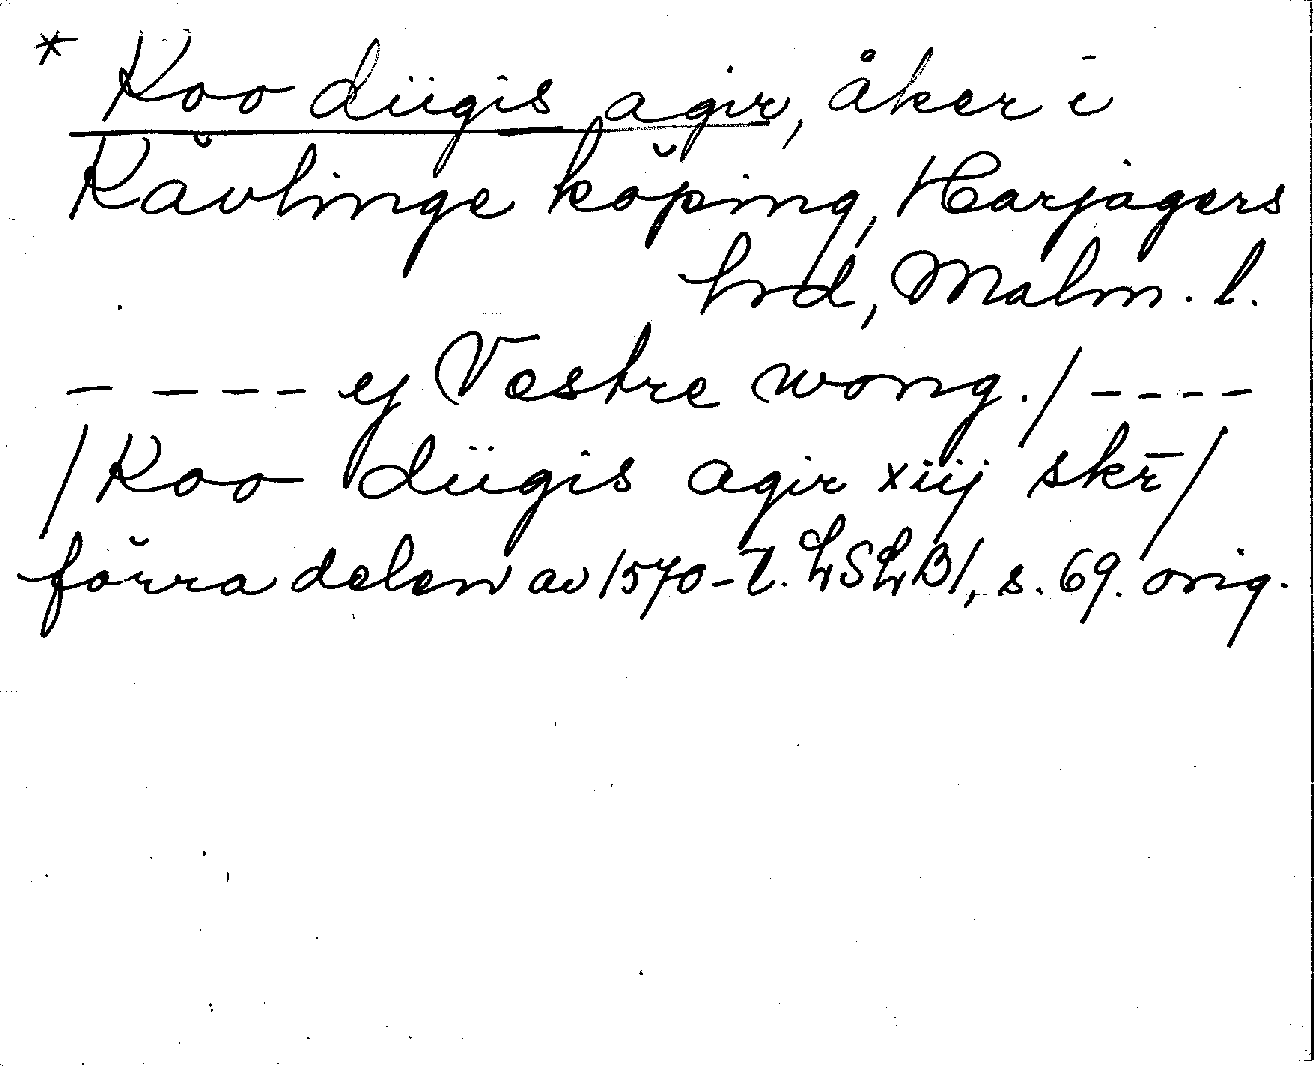 * Koo diigis agir, åker i
Kävlinge köping, Harjagers
hrd, Malm. l.
- - - - - ej Vestre wong. / - - - -
/ Koo diigis agir xiij skr̄ /
förra delen av 1570-t. LSLB1, s. 69. orig.